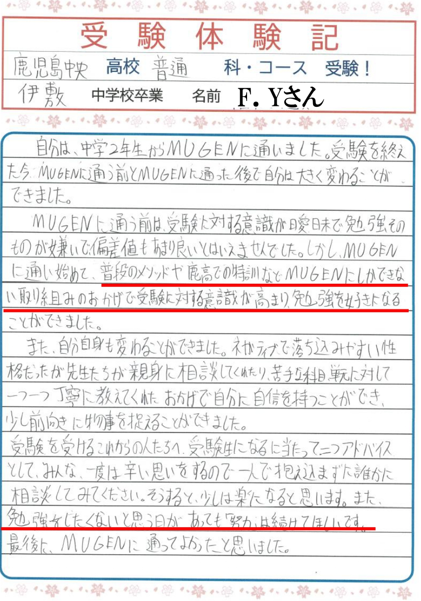 受験体験記
鹿児島中央 高校 普通 科・コース 受験！
伊敷 中学校卒業 名前 F. Yさん
自分は、中学2年生からMUGENに通いました。受験を終え
た今、MUGENに通う前とMUGENに通った後で自分は大きく変わることが
できました。
MUGENに通う前は、受験に対する意識が曖昧で勉強その
ものが嫌いで偏差値もあまり良いとはいえませんでした。しかし、MUGEN
に通い始めて、普段のメソッドや鹿高での特訓などMUGENにしかできな
い取り組みのおかげで受験に対する意識が高まり勉強を好きになる
ことができました。
また、自分自身も変わることができました。ネガティブで落ち込みやすい性
格だったが先生たちが親身に相談してくれたり、苦手な科目に対して
一つ一つ丁寧に教えてくれたおかげで自分に自信を持つことができ、
少し前向きに物事を捉えることができました。
受験を受けるこれからの人たちへ、受験生になるに当って二つアドバイス
として、みんな、一度は辛い思いをするので一人で抱え込まずに誰かに
相談してみてください。そうすると、少しは楽になると思います。また、
勉強をしたくないと思う日があっても「努力」は続けてほしいです。
最後に、MUGENに通ってよかったと思いました。